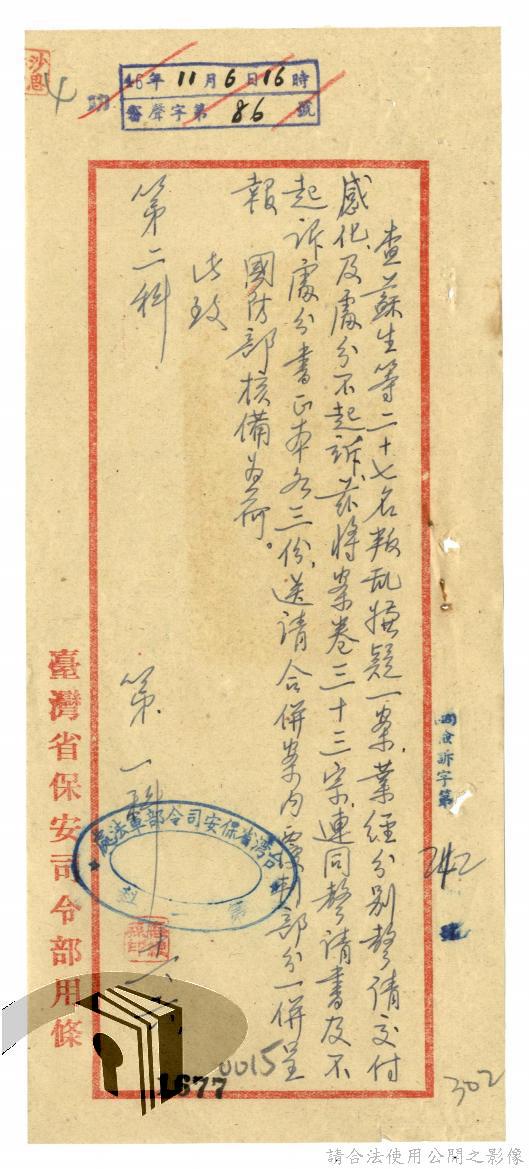 46年11月6日16時
審聲字第86號
查蘇生等二十七名叛乱嫌疑一案,業經分別聲請交付
感化及處分不起訴,茲將案卷三十三宗,連同聲請書及不
起訴處分書正本各三份,送請合併案內覆判部分一併呈
報 國防部核備為荷。
此致
第二科
第一科
台灣省保安司令部軍法處
臺灣省保安司令部用條
訴字第
242
號
302
0015
1677
請合法使用公開之影像